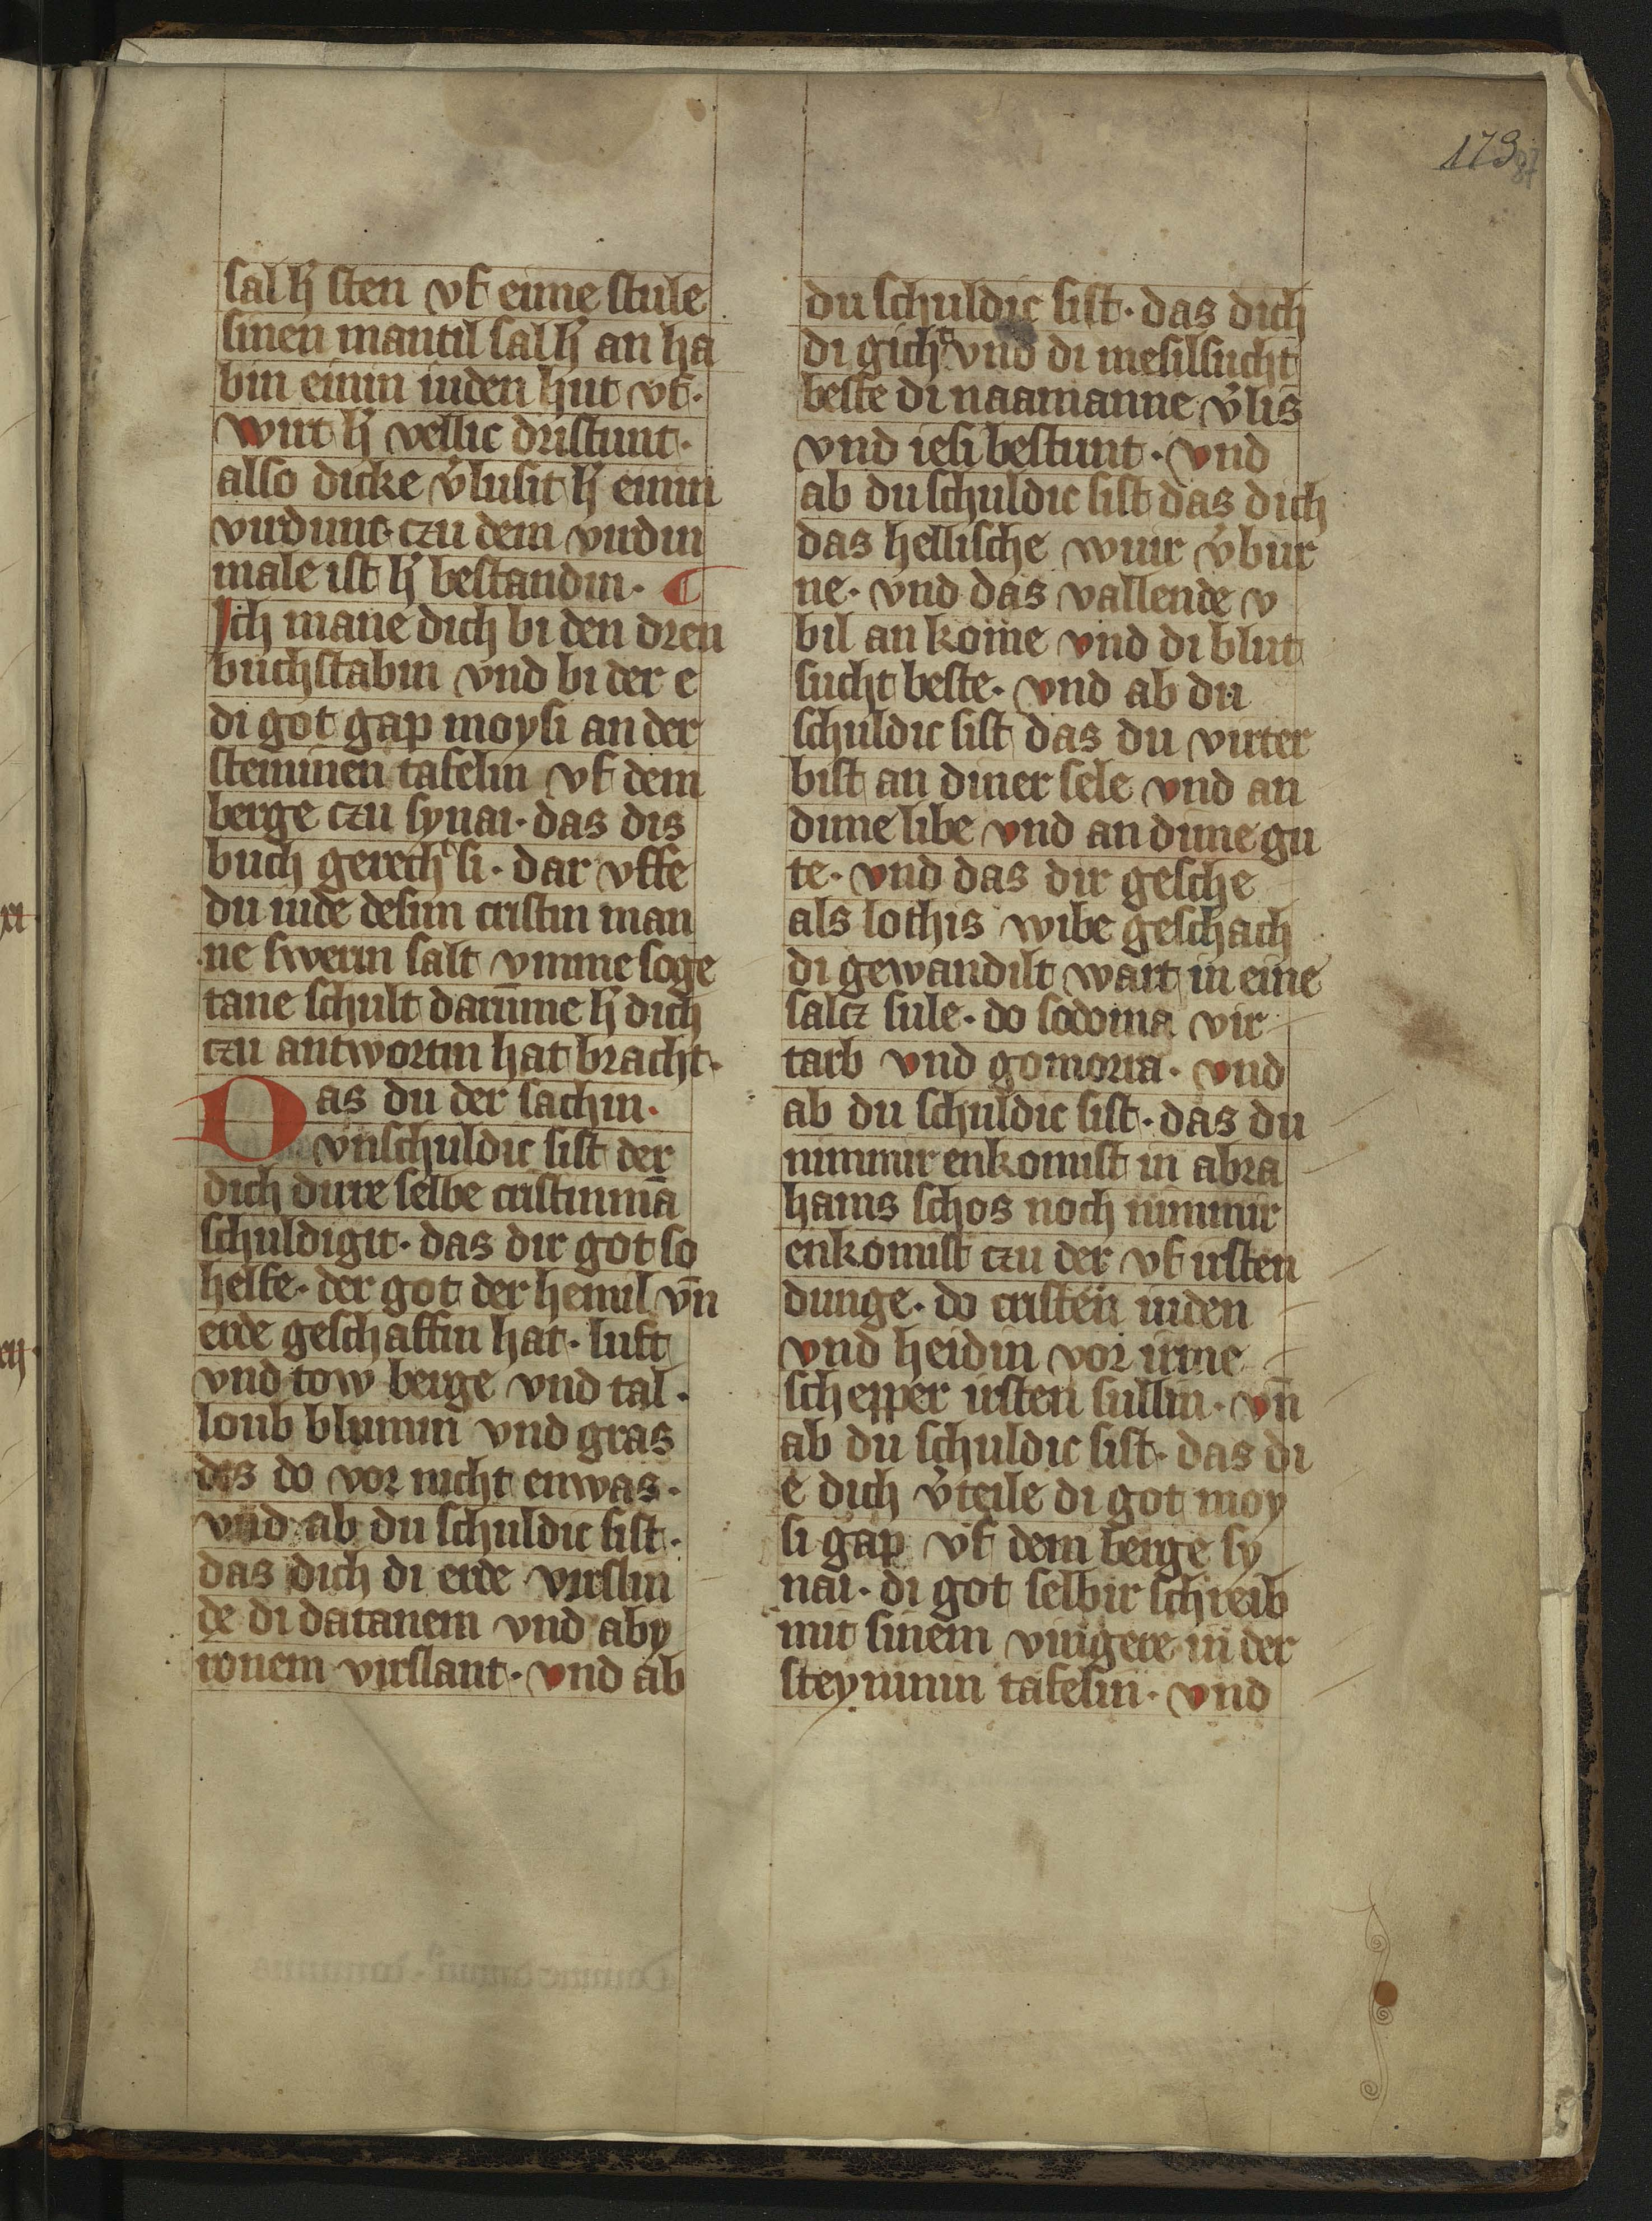 179
87
sal h̓ sten vf eime stule
sinen mantil sal h̓ an ha
bin einin iuden hut vf·
wirt h̓ vellic dristunt·
also dicke v̓lusit h̓ einin
virdunc· czu dem virdin
male ist h̓ bestandin·
Ich mane dich bi den dren
buchstabin vnd bi der e
di got gap moysi an der
steininen tafelin vf dem
berge czu synai· das dis
buch gerecht si· dar vffe
du iude desim cristin man
ne swerin salt vmme soge
tane schult darūme h̓ dich
czu antwortin hat bracht·
Das du der sachin·
vnschuldic sist der
dich dirre selbe cristinmā
schuldigit· das dir got so
helfe· der got der hemil vn̄
erde geschaffin hat· luft
vnd tow berge vnd tal·
loub blumin vnd gras
des do vor nicht enwas·
vnd ab du schuldic sist·
das dich di erde virslin
de di datanem vnd aby
ronem virslant· vnd ab
du schuldic sist· das dich
di gicht vnd di miselsucht
beste di naamanne v̓lis
vnd iesi bestunt· vnd
ab du schuldic sist das dich
das hellische wuir v̓bur
ne· vnd das vallende v
bil an kome vnd di blut
sucht beste· vnd ab du
schuldic sist das du virter
bist an diner sele vnd an
dime libe vnd an dime gu
te· vnd das dir gesche
als lothis wibe geschach
di gewandilt wart in eine
salcz sule· do sodoma vir
tarb vnd gomorra· vnd
ab du schuldic sist· das du
nimmir enkomist in abra
hams schos noch nimmir
enkomist czu der vf irsten
dunge· do cristen iuden
vnd heidin vor irme
schepper irsten sullin· vn̄
ab du schuldic sist· das di
e dich v̓teile di got moy
si gap vf dem berge sy
nai· di got selbir schreib
mit sinem vingere in der
steyninin tafelin· vnd